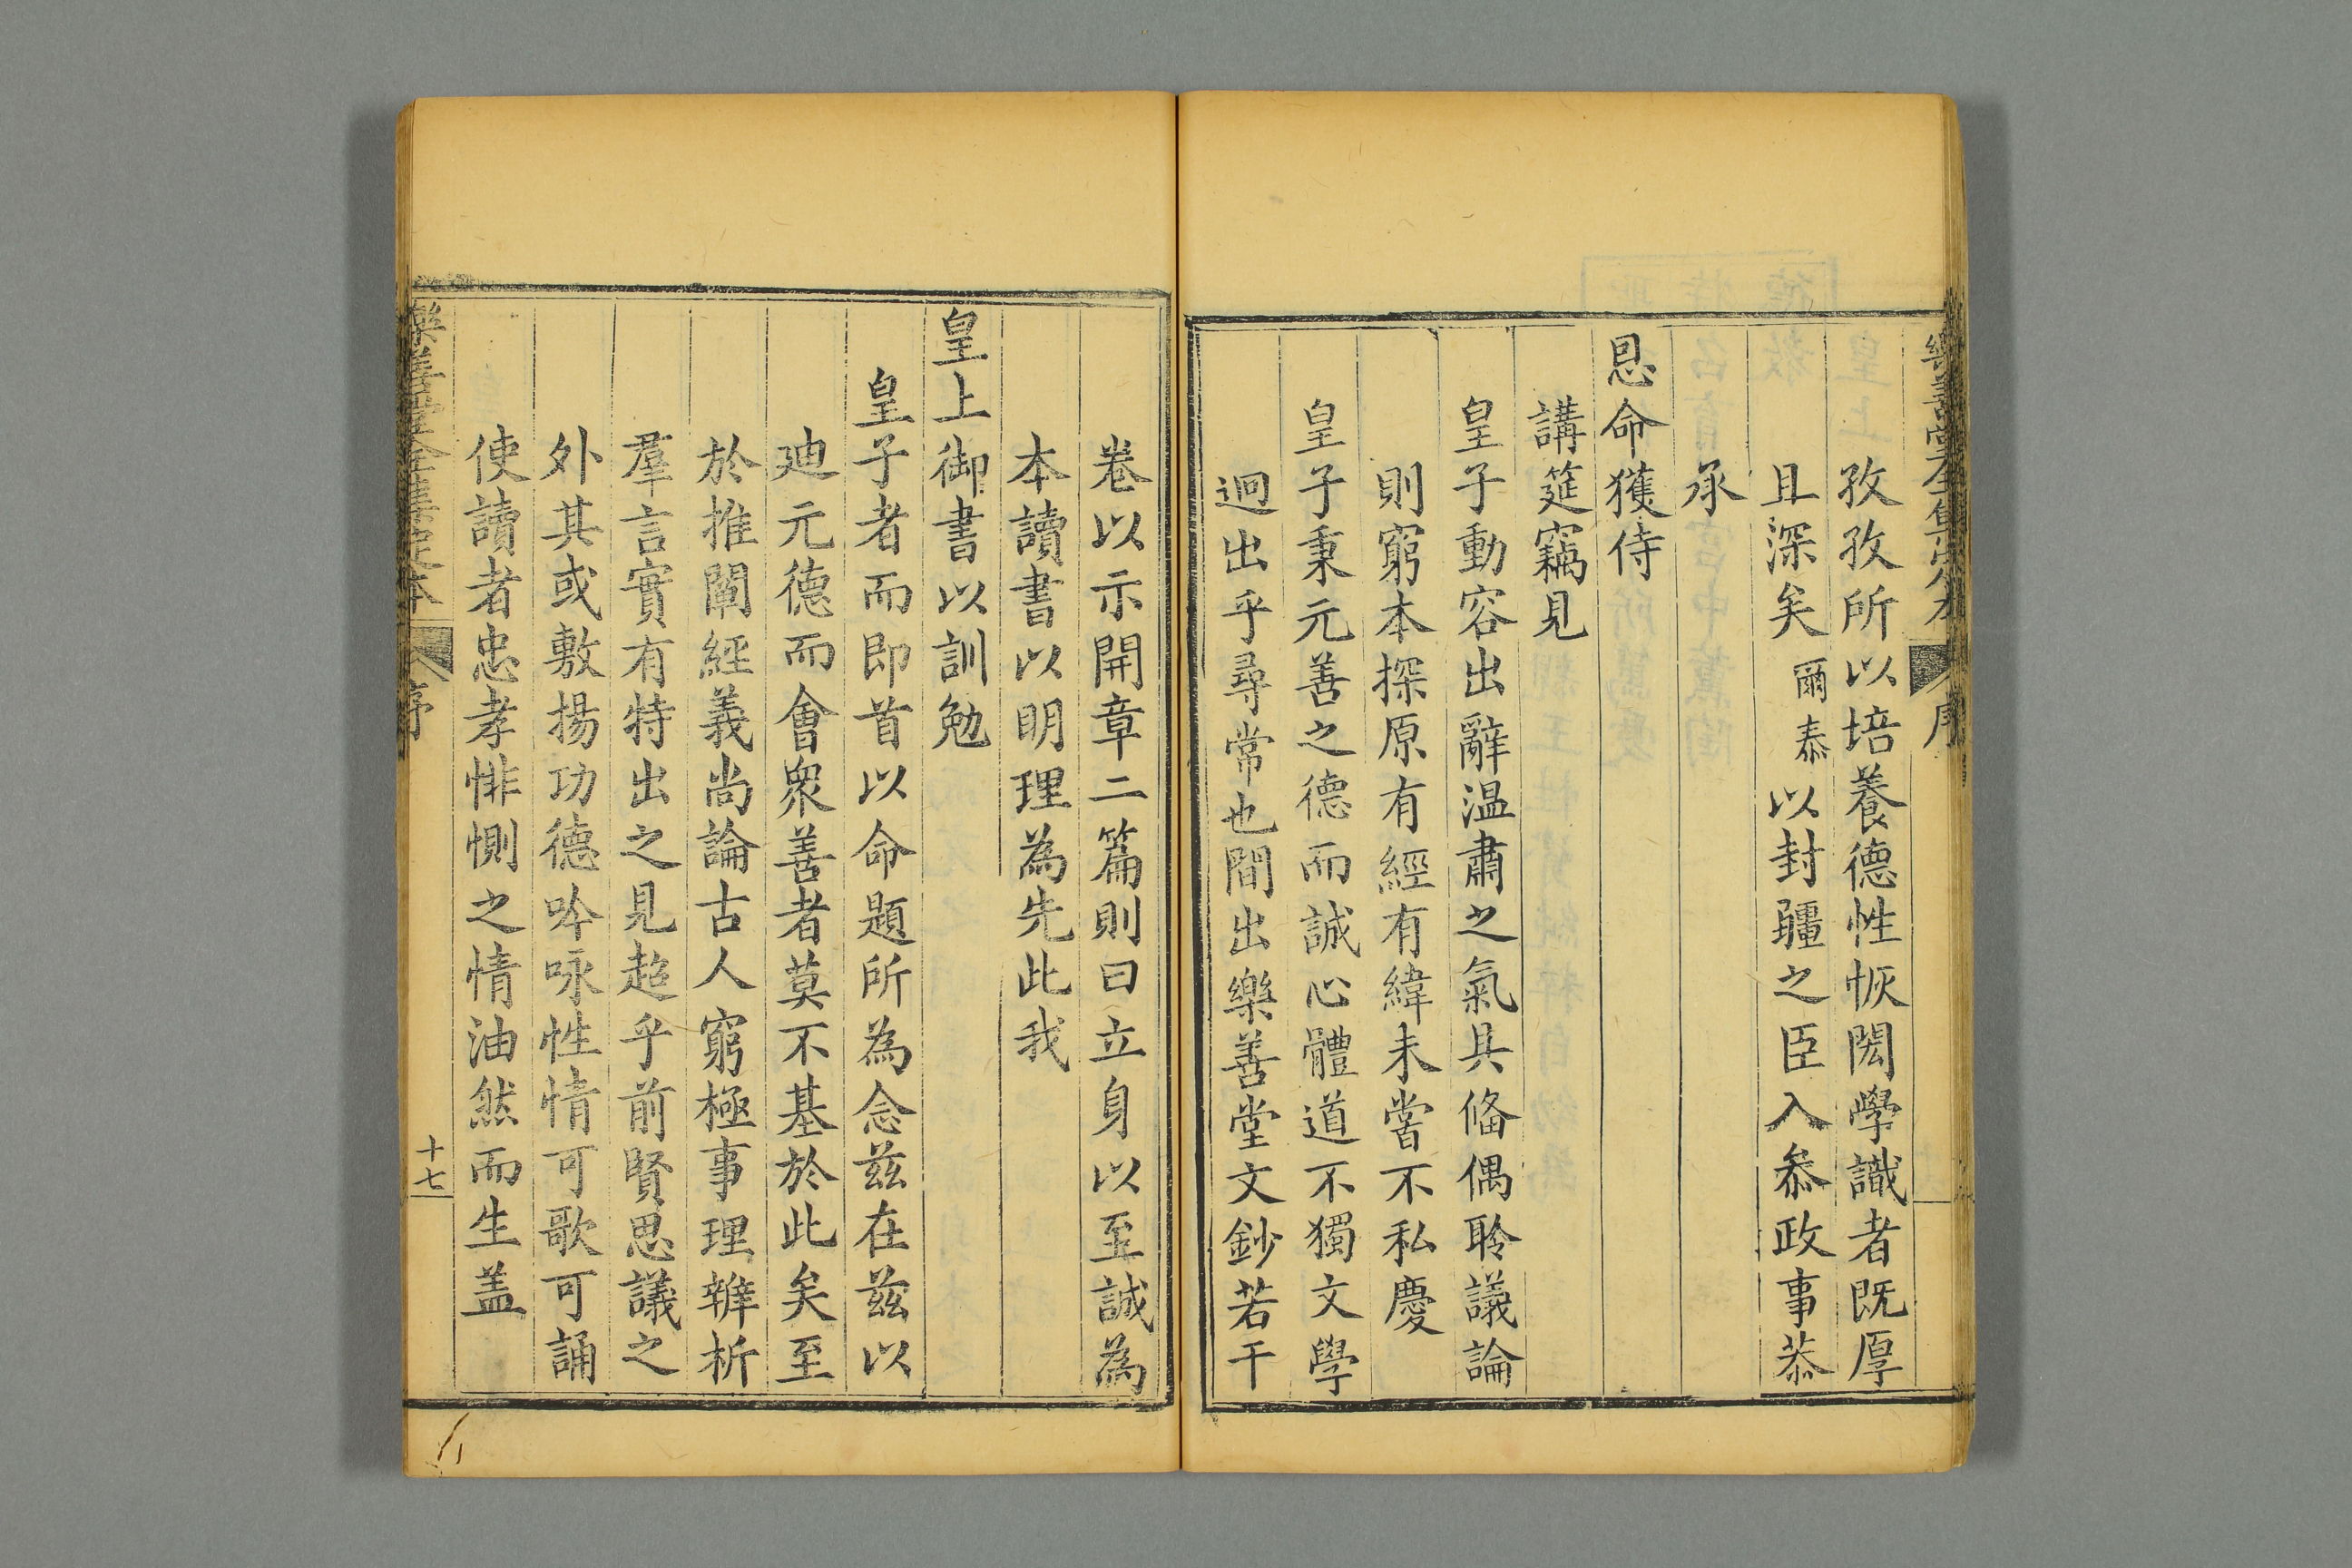 樂善堂全集定本 序
孜孜所以培養德性恢閎學識者既厚
且深矣爾泰以封疆之臣入叅政事恭
承
恩命獲侍
講筵竊見
皇子動容出辭温肅之氣具俻偶聆議論
則窮本探原有經有緯未嘗不私慶
皇子秉元善之德而誠心體道不獨文學
迥出乎尋常也間出樂善堂文鈔若干
卷以示開章二篇則曰立身以至誠為
本讀書以明理為先此我
皇上御書以訓勉
皇子者而即首以命題所為念兹在兹以
廸元德而會衆善者莫不基於此矣至
於推闡經義尚論古人窮極事理辨析
羣言實有特出之見超乎前賢思議之
外其或敷揚功德吟咏性情可歌可誦
使讀者忠孝悱惻之情油然而生盖
樂善堂全集定本 序 十七